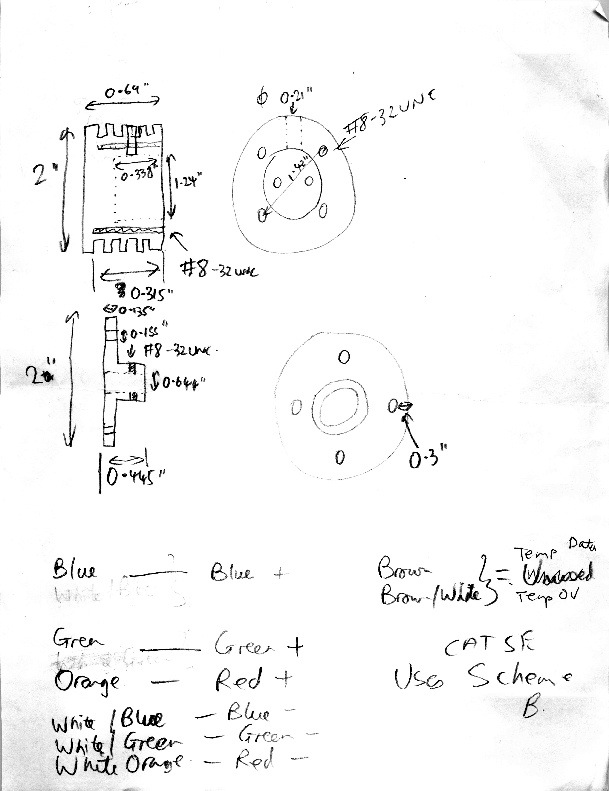 0.69"
ϕ 0.21"
#8-32 UNC
2"
0.338"
1.24"
1.42"
#8-32 UNC
0.315"
0.135"
0.155"
#8-32 UNC
2"
0.644"
0.445"
0.3"
Blue — Blue +
Brown } = Temp Data
Brown/White } Temp 0V
Gren — Green +
Orange — Red +
CAT 5E
Uses Scheme
B.
White/Blue — Blue -
White/Green - Green -
White Orange - Red -